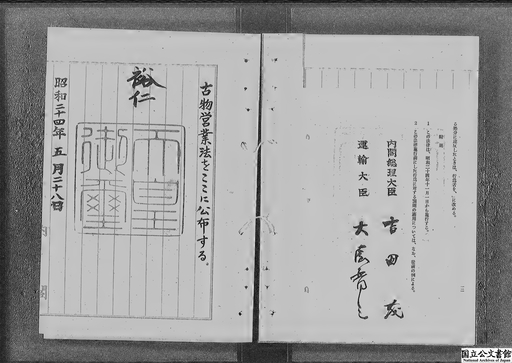 内閣総理大臣 吉田茂
運輸大臣 大屋晋三
古物営業法をここに公布する。
裕仁
天皇御璽
昭和二十四年五月二十八日
国立公文書館
National Archives of Japan